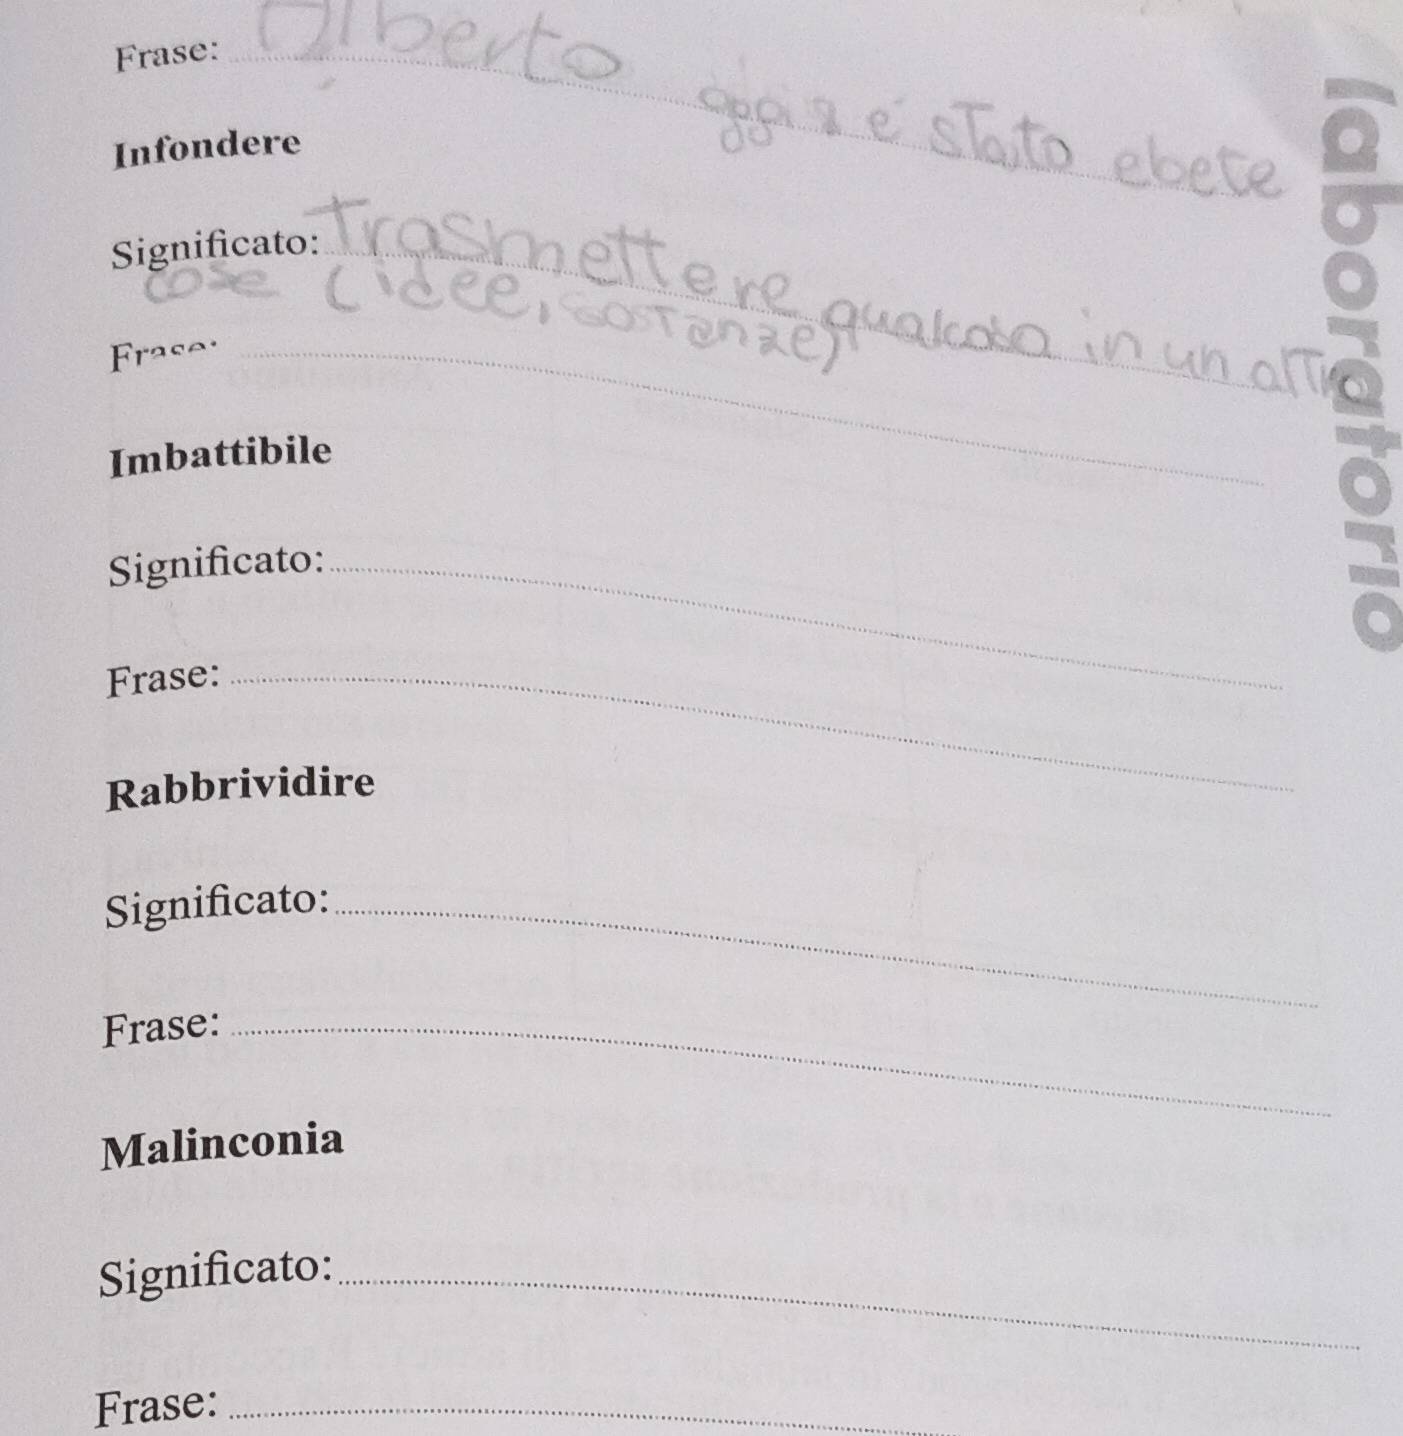 Frase: Alberto oggi è stato ebete
Infondere
Significato: Trasmettere qualcosa in un altro
cose (idee, sostanze)
Frase:
Imbattibile
Significato:
Frase:
Rabbrividire
Significato:
Frase:
Malinconia
Significato:
Frase:
laboratorio